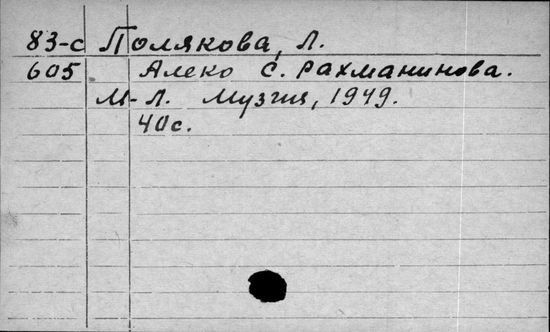 83-с Полякова, Л.
605 Алеко С. Рахманинова.
М-Л. Музгиз, 1949.
40с.